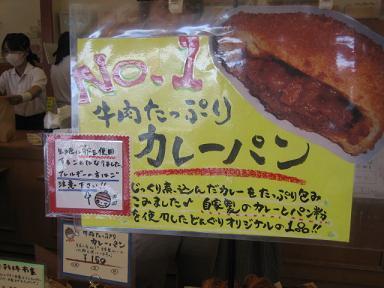 NO.1
牛肉たっぷり
カレーパン
じっくり煮込んだカレーをたっぷり包み
こみました♪ 自家製のカレーとパン粉
を使用したどんぐりオリジナルの1品!!
使用
アレルギーの方はご
注意下さい!!
牛肉たっぷり
カレーパン